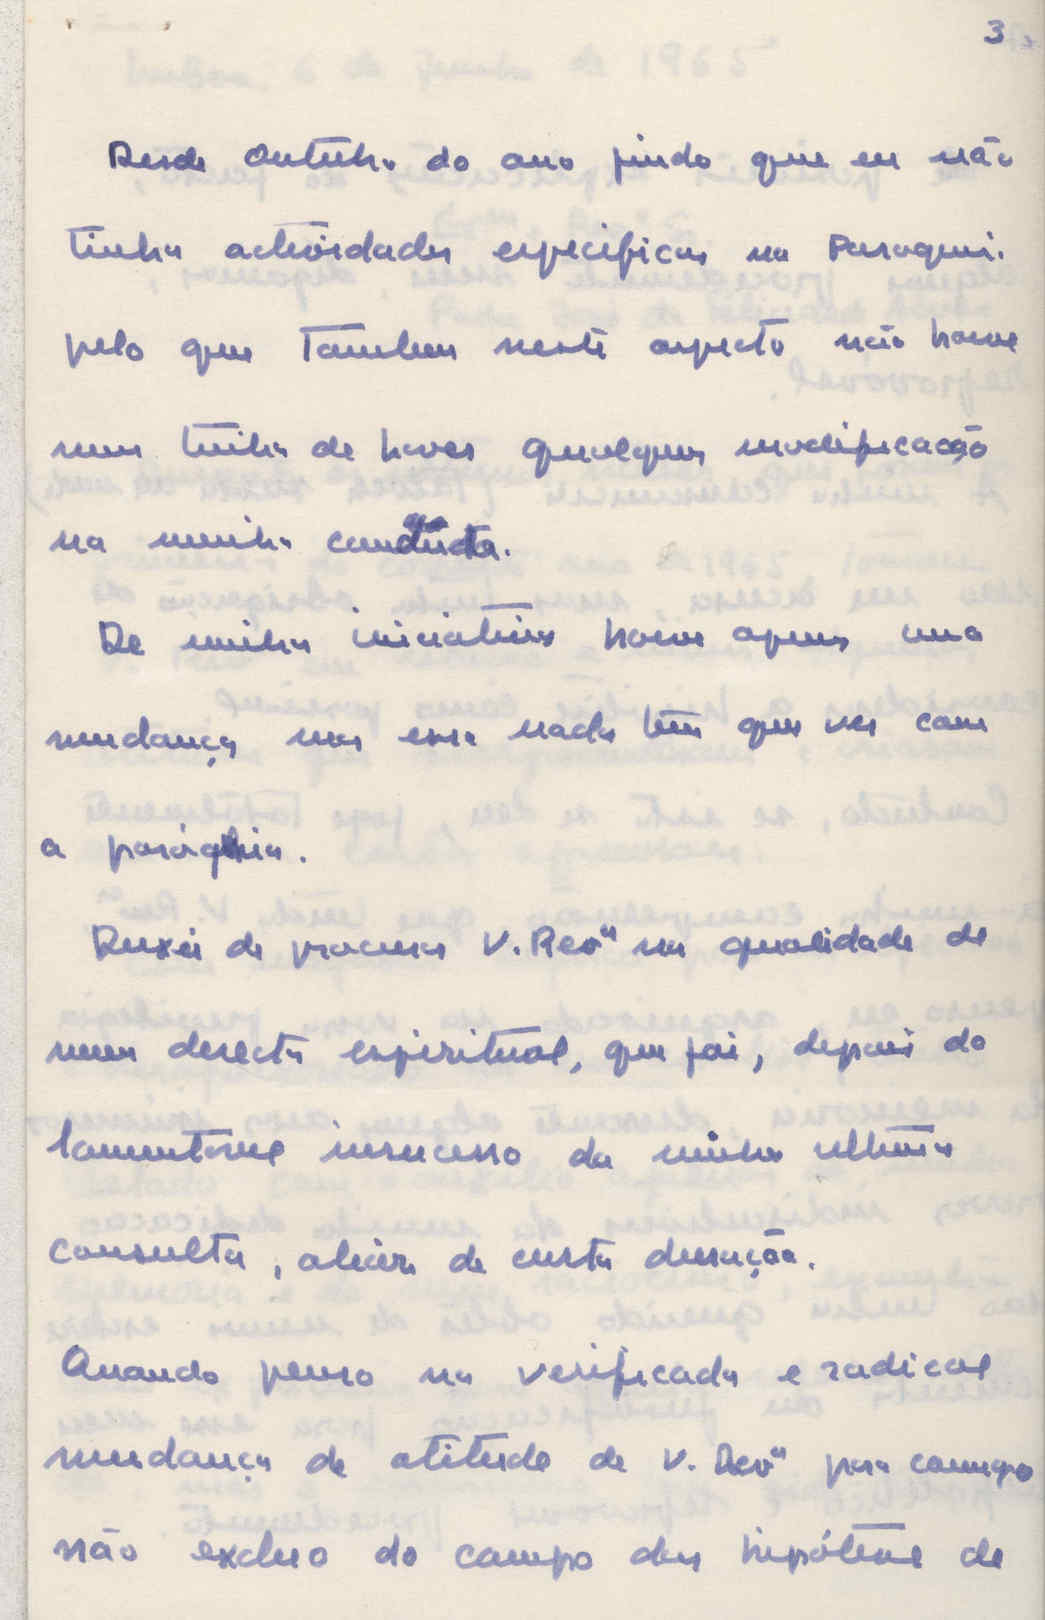 3
Desde Outubro do ano findo que eu não
tinha actividades especificas na Paroquia.
pelo que tambem neste aspecto não houve
nem tinha de haver qualquer modificação
na minha conducta.
De minha iniciativa houve apenas uma
mudança mas essa nada tem que ver com
a paróquia.
Deixei de procurar V. Revª na qualidade de
meu director espiritual, que foi, depois do
lamentavel insucesso da minha ultima
consulta, aliás de curta duração.
Quando penso na verificada e radical
mudança de atitude de V. Revª para comigo
não excluo do campo das hipótese de